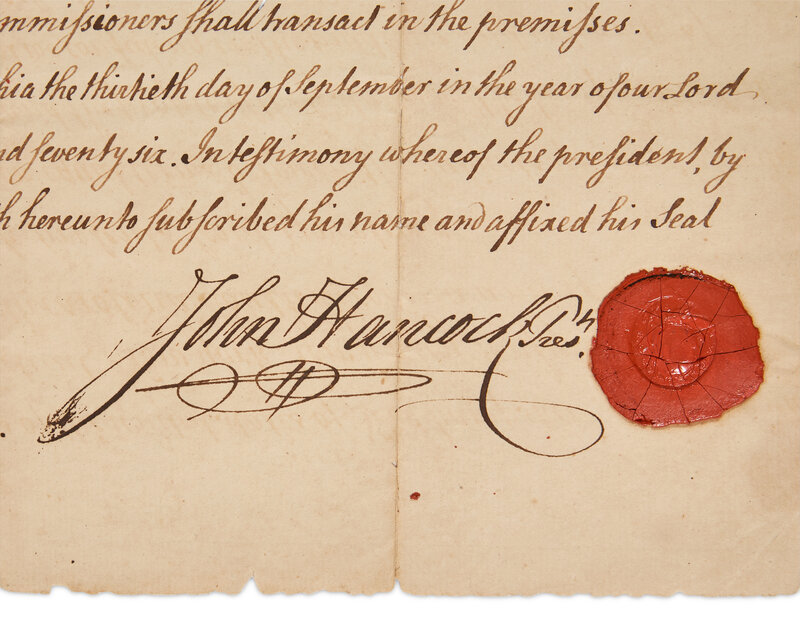 mmissioners shall transact in the premisses.
hia the thirtieth day of September in the year of our Lord
nd seventy six. In testimony whereof the president, by
h hereunto subscribed his name and affixed his Seal
John Hancock Presdt.